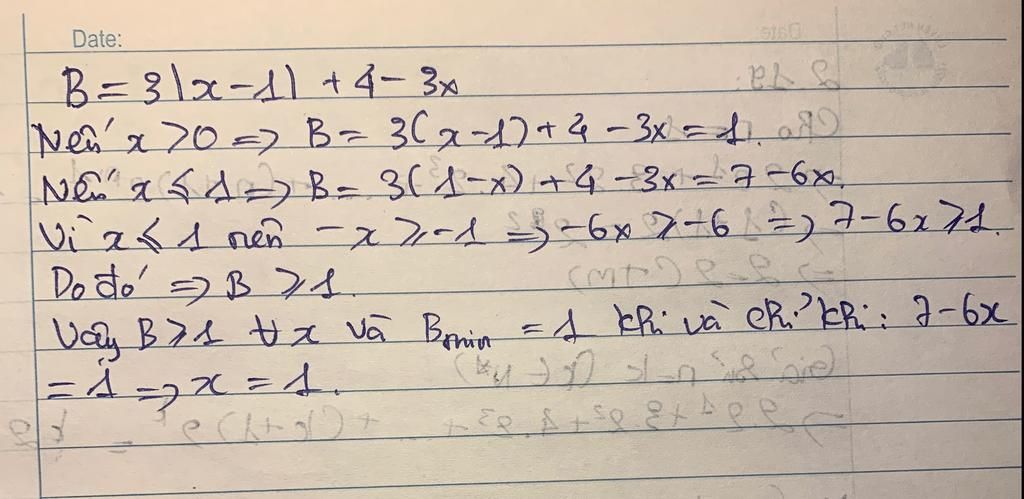 Date:
B = 3|x - 1| + 4 - 3x
Nếu x > 0 => B = 3(x - 1) + 4 - 3x = 1.
Nếu x ≤ 1 => B = 3(1 - x) + 4 - 3x = 7 - 6x.
Vì x ≤ 1 nên - x ≥ -1 => -6x ≥ -6 => 7 - 6x ≥ 1.
Do đó => B ≥ 1.
Vậy B ≥ 1 ∀x và Bmin = 1 khi và chỉ khi: 7 - 6x
= 1 => x = 1.